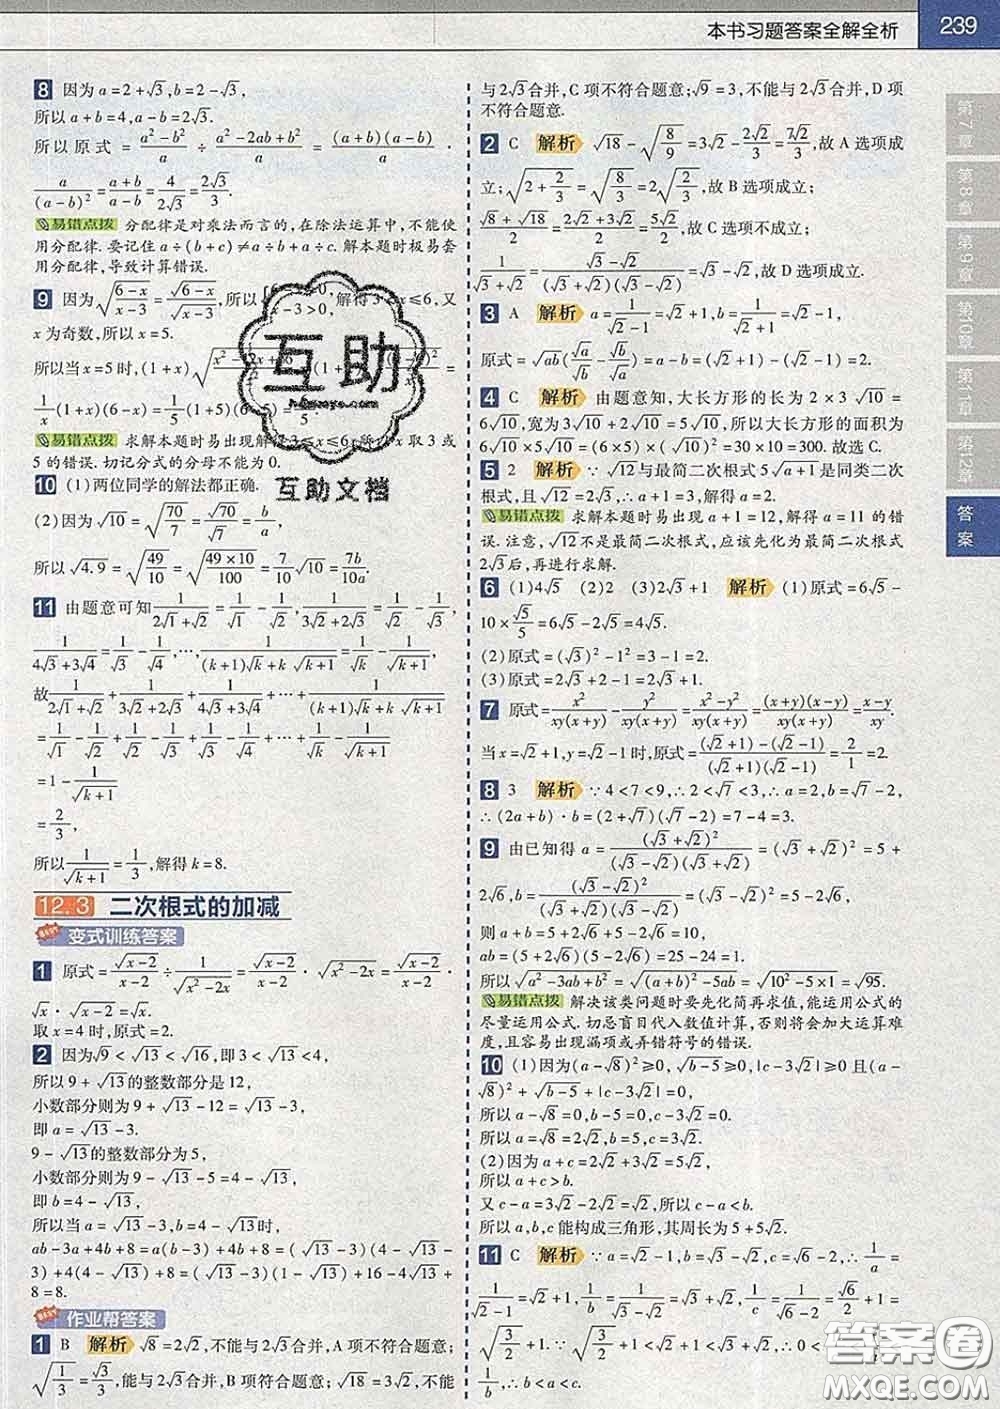 本书习题答案全解全析 239
8 因为a=2+√3,b=2-√3,
所以a+b=4,a-b=2√3.
所以原式=(a²-b²)/a÷(a²-2ab+b²)/a=(a+b)(a-b)/a·
a/(a-b)²=(a+b)/(a-b)=4/(2√3)=2√3/3.
易错点拨 分配律是对乘法而言的,在除法运算中,不能使
用分配律.要记住a÷(b+c)≠a÷b+a÷c.解本题时极易套
用分配律,导致计算错误.
9 因为√((6-x)/(x-3))=√(6-x)/√(x-3),所以
x-3>0, 解得3<x≤6,又
x为奇数,所以x=5.
所以当x=5时,(1+x)
1/x(1+x)(6-x)=1/5(1+5)(6-5)=6/5.
易错点拨 求解本题时易出现
取3或
5的错误.切记分式的分母不能为0.
10 (1)两位同学的解法都正确.
(2)因为√10=√(70/7)=√70/√7=b/a,
所以√4.9=√(49/10)=√((49×10)/100)=7b/(10a).
11 由题意可知1/(2√1+√2)=1/√1-1/√2,1/(3√2+2√3)=1/√2-1/√3,
1/(4√3+3√4)=1/√3-1/√4,…,1/((k+1)√k+k√(k+1))=1/√k-1/√(k+1),
故1/(2√1+√2)+1/(3√2+2√3)+1/(4√3+3√4)+…+1/((k+1)√k+k√(k+1))
=1/√1-1/√2+1/√2-1/√3+1/√3-1/√4+…+1/√k-1/√(k+1)
=1-1/√(k+1)
=2/3,
所以1/√(k+1)=1/3,解得k=8.
12.3 二次根式的加减
变式训练答案
1 原式=√(x-2)/(x-2)÷1/√(x²-2x)=√(x-2)/(x-2)·√(x²-2x)=√(x-2)/(x-2)·
√x·√(x-2)=√x.
取x=4时,原式=2.
2 因为√9<√13<√16,即3<√13<4,
所以9+√13的整数部分是12,
小数部分则为9+√13-12=√13-3,
即a=√13-3.
9-√13的整数部分为5,
小数部分则为9-√13-5=4-√13,
即b=4-√13,
所以当a=√13-3,b=4-√13时,
ab-3a+4b+8=a(b-3)+4b+8=(√13-3)(4-√13
-3)+4(4-√13)+8=(√13-3)(1-√13)+16-4√13+
8=8.
作业帮答案
1 B 解析 √8=2√2,不能与2√3合并,A项不符合题意;
√(1/3)=√3/3,能与2√3合并,B项符合题意;√18=3√2,不能
与2√3合并,C项不符合题意;√9=3,不能与2√3合并,D项
不符合题意.
2 C 解析 √18-√(8/9)=3√2-2√2/3=7√2/3,故A选项成
立;√(2+2/3)=√(8/3)=2√(2/3),故B选项成立;
(√8+√18)/2=(2√2+3√2)/2=5√2/2,故C选项不成立;
1/(√3+√2)=(√3-√2)/((√3+√2)(√3-√2))=√3-√2,故D选项成立.
3 A 解析 a=1/(√2-1)=√2+1,b=1/(√2+1)=√2-1,
原式=√ab(√a/√b-√b/√a)=a-b=√2+1-(√2-1)=2.
4 C 解析 由题意知,大长方形的长为2×3√10=
6√10,宽为3√10+2√10=5√10,所以大长方形的面积为
6√10×5√10=(6×5)×(√10)²=30×10=300.故选C.
5 2 解析 ∵√12与最简二次根式5√(a+1)是同类二次
根式,且√12=2√3,∴a+1=3,解得a=2.
易错点拨 求解本题时易出现a+1=12,解得a=11的错
误.注意,√12不是最简二次根式,应该先化为最简二次根式
2√3后,再进行求解.
6 (1)4√5 (2)2 (3)2√3+1 解析 (1)原式=6√5-
10×√5/5=6√5-2√5=4√5.
(2)原式=(√3)²-1²=3-1=2.
(3)原式=2√3+2-1=2√3+1.
7 原式=x²/(xy(x+y))-y²/(xy(x+y))=(x²-y²)/(xy(x+y))=(x+y)(x-y)/(xy(x+y))=(x-y)/xy.
当x=√2+1,y=√2-1时,原式=((√2+1)-(√2-1))/((√2+1)(√2-1))=2/1=2.
8 3 解析 ∵4<7<9,∴2<√7<3,∴a=2,b=√7-2,
∴(2a+b)·b=(2+√7)(√7-2)=7-4=3.
9 由已知得a=(√3+√2)²/((√3-√2)(√3+√2))=(√3+√2)²=5+
2√6,b=(√3-√2)²/((√3+√2)(√3-√2))=(√3-√2)²=5-2√6,
则a+b=5+2√6+5-2√6=10,
ab=(5+2√6)(5-2√6)=25-24=1.
所以√(a²-3ab+b²)=√((a+b)²-5ab)=√(10²-5×1)=√95.
易错点拨 解决该类问题时要先化简再求值,能运用公式的
尽量运用公式.切忌盲目代入数值计算,否则将会加大运算难
度,且容易出现漏项或弄错符号的错误.
10 (1)因为(a-√8)²≥0,√(b-5)≥0,|c-3√2|≥0,(a-
√8)²+√(b-5)+|c-3√2|=0,
所以a-√8=0,b-5=0,c-3√2=0.
所以a=√8=2√2,b=5,c=3√2.
(2)因为a+c=2√2+3√2=5√2,
所以a+c>b.
又c-a=3√2-2√2=√2,所以c-a<b.
所以a,b,c能构成三角形,其周长为5+5√2.
11 C 解析 ∵a=√2-1,b=√3-√2,c=√6-2,∴1/a=
1/(√2-1)=√2+1,1/b=1/(√3-√2)=√3+√2,1/c=1/(√6-2)=√6/2+1=
√(3/2)+1.∵√(3/2)+1<√2+1<√3+√2,∴0<
1/b,∴b<a<c.
第7章
第8章
第9章
第10章
第11章
第12章
答案
互助
互助文档
答案圈
MXQE.COM